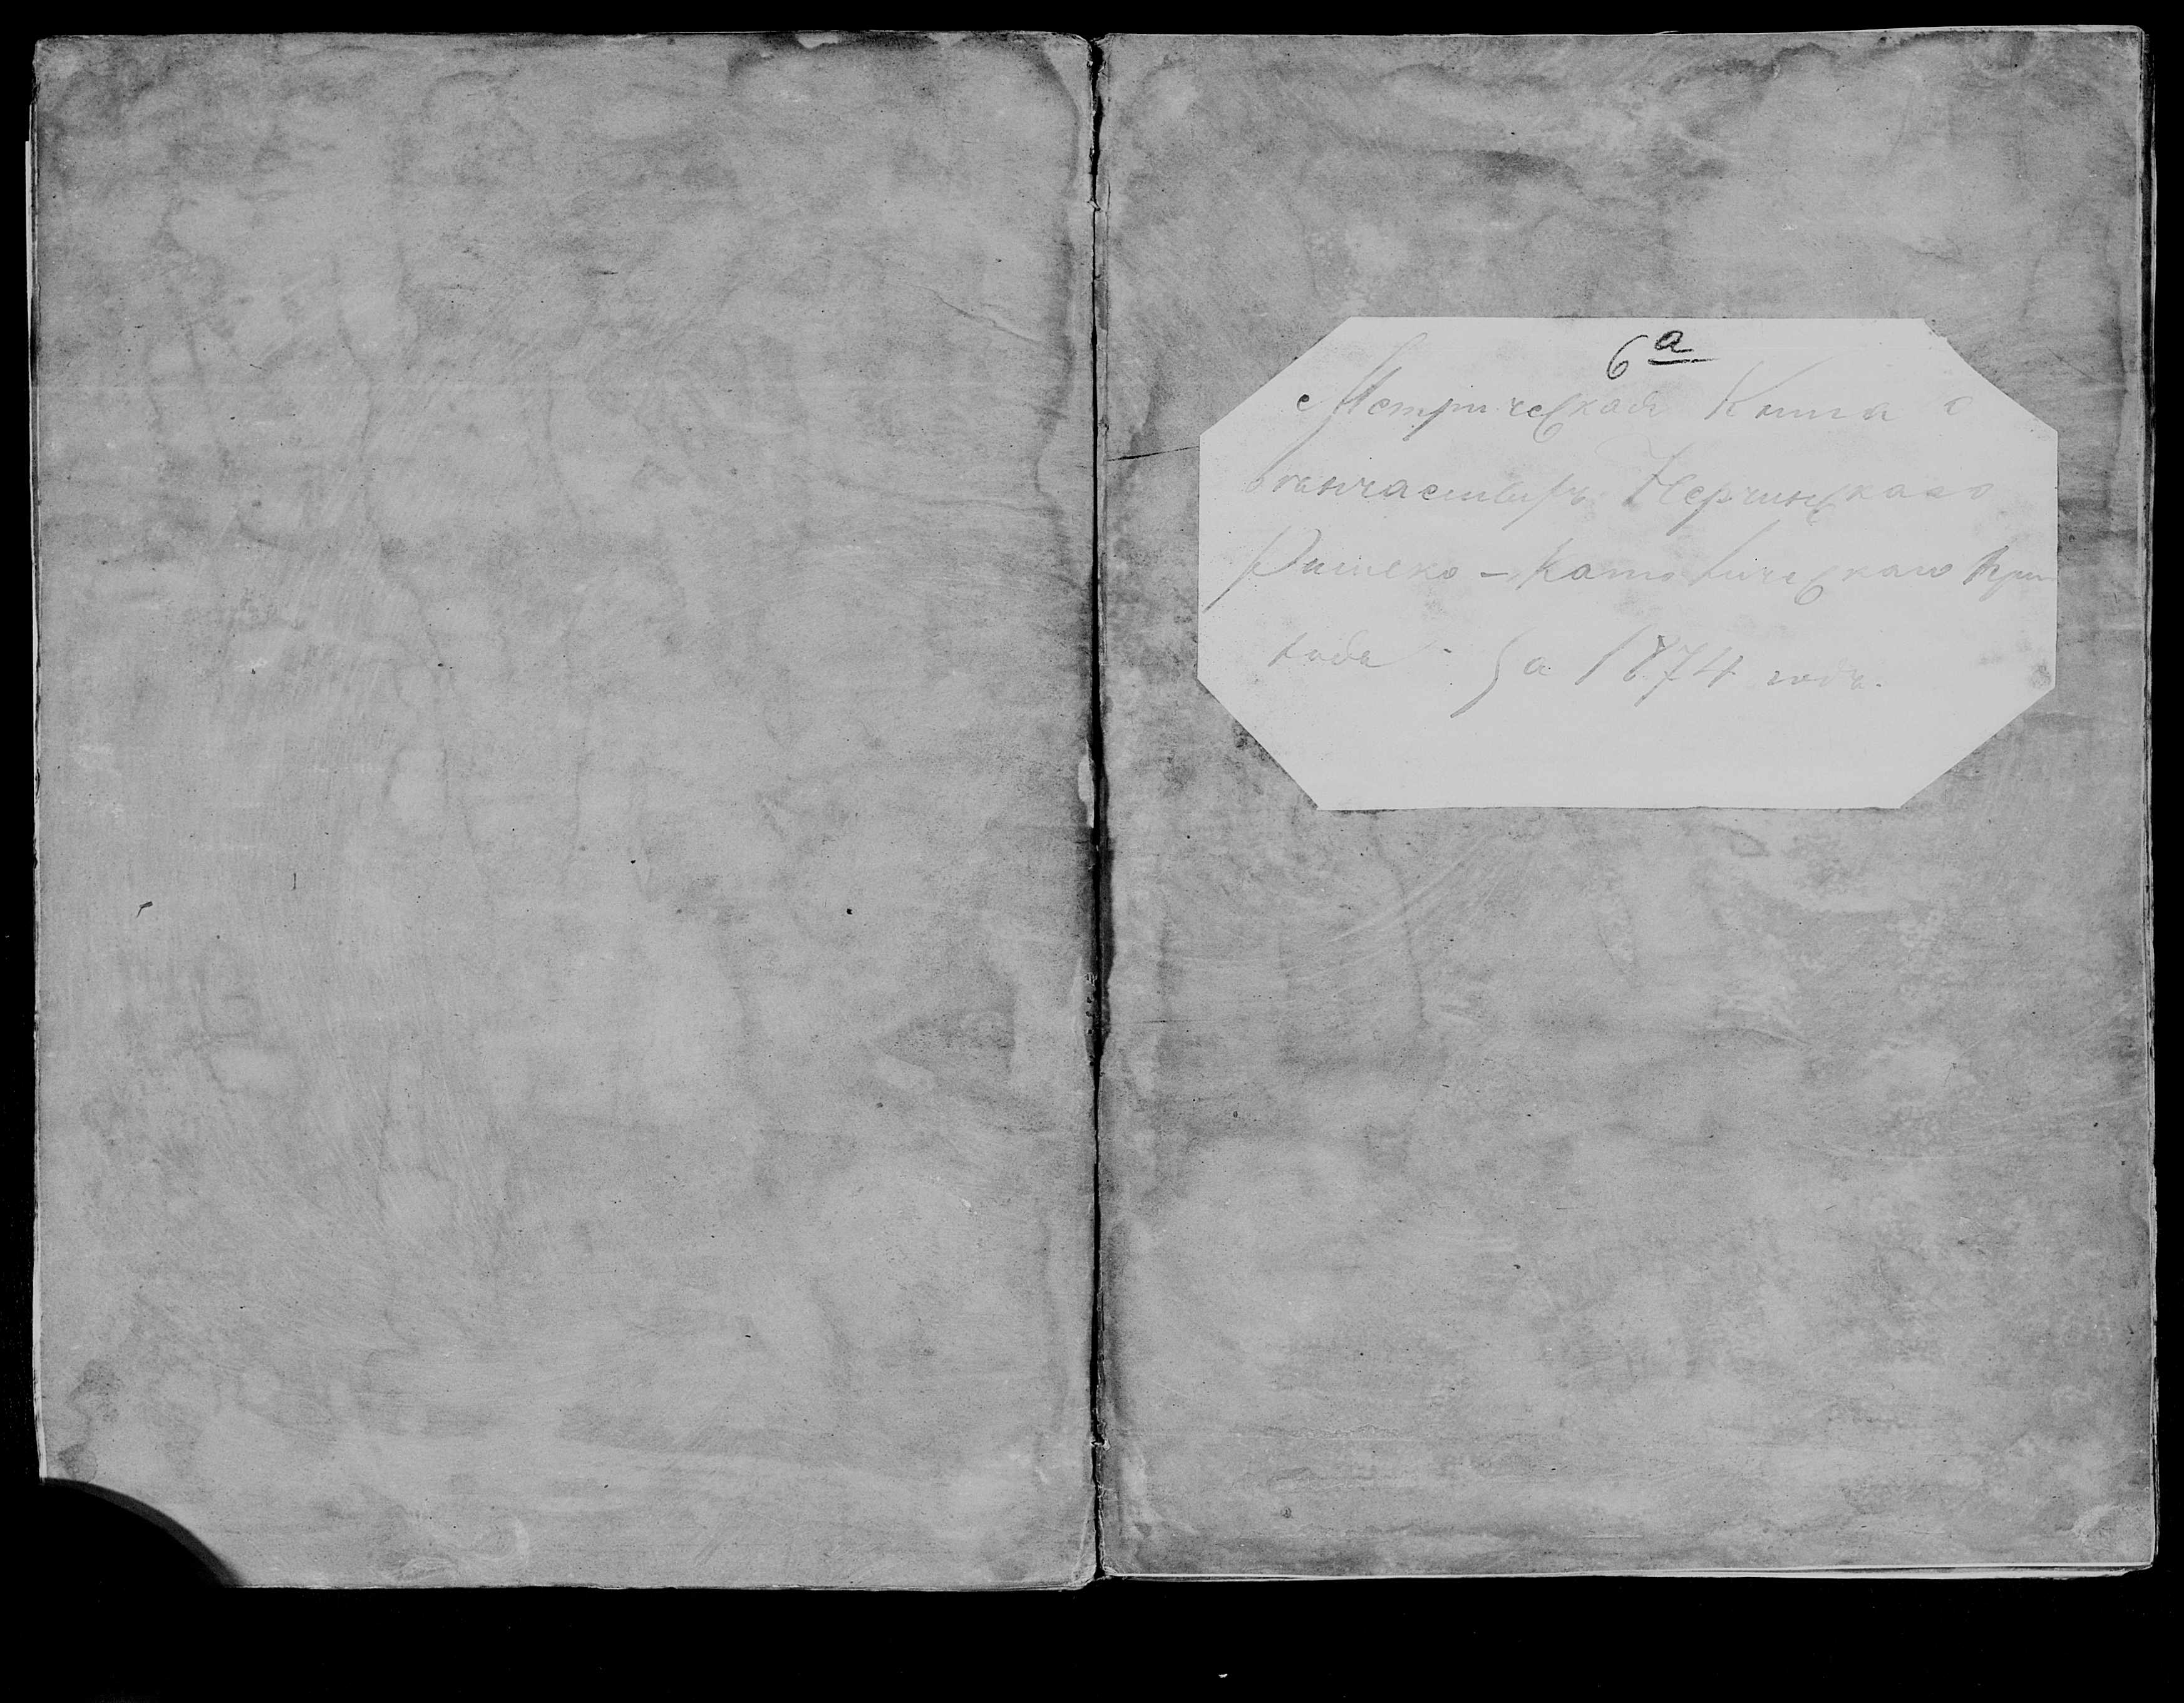 6а
Метрическая Книга о
бракосочетавшихся Нерчинскаго
Римско-Католическаго При
хода За 1874 годъ.